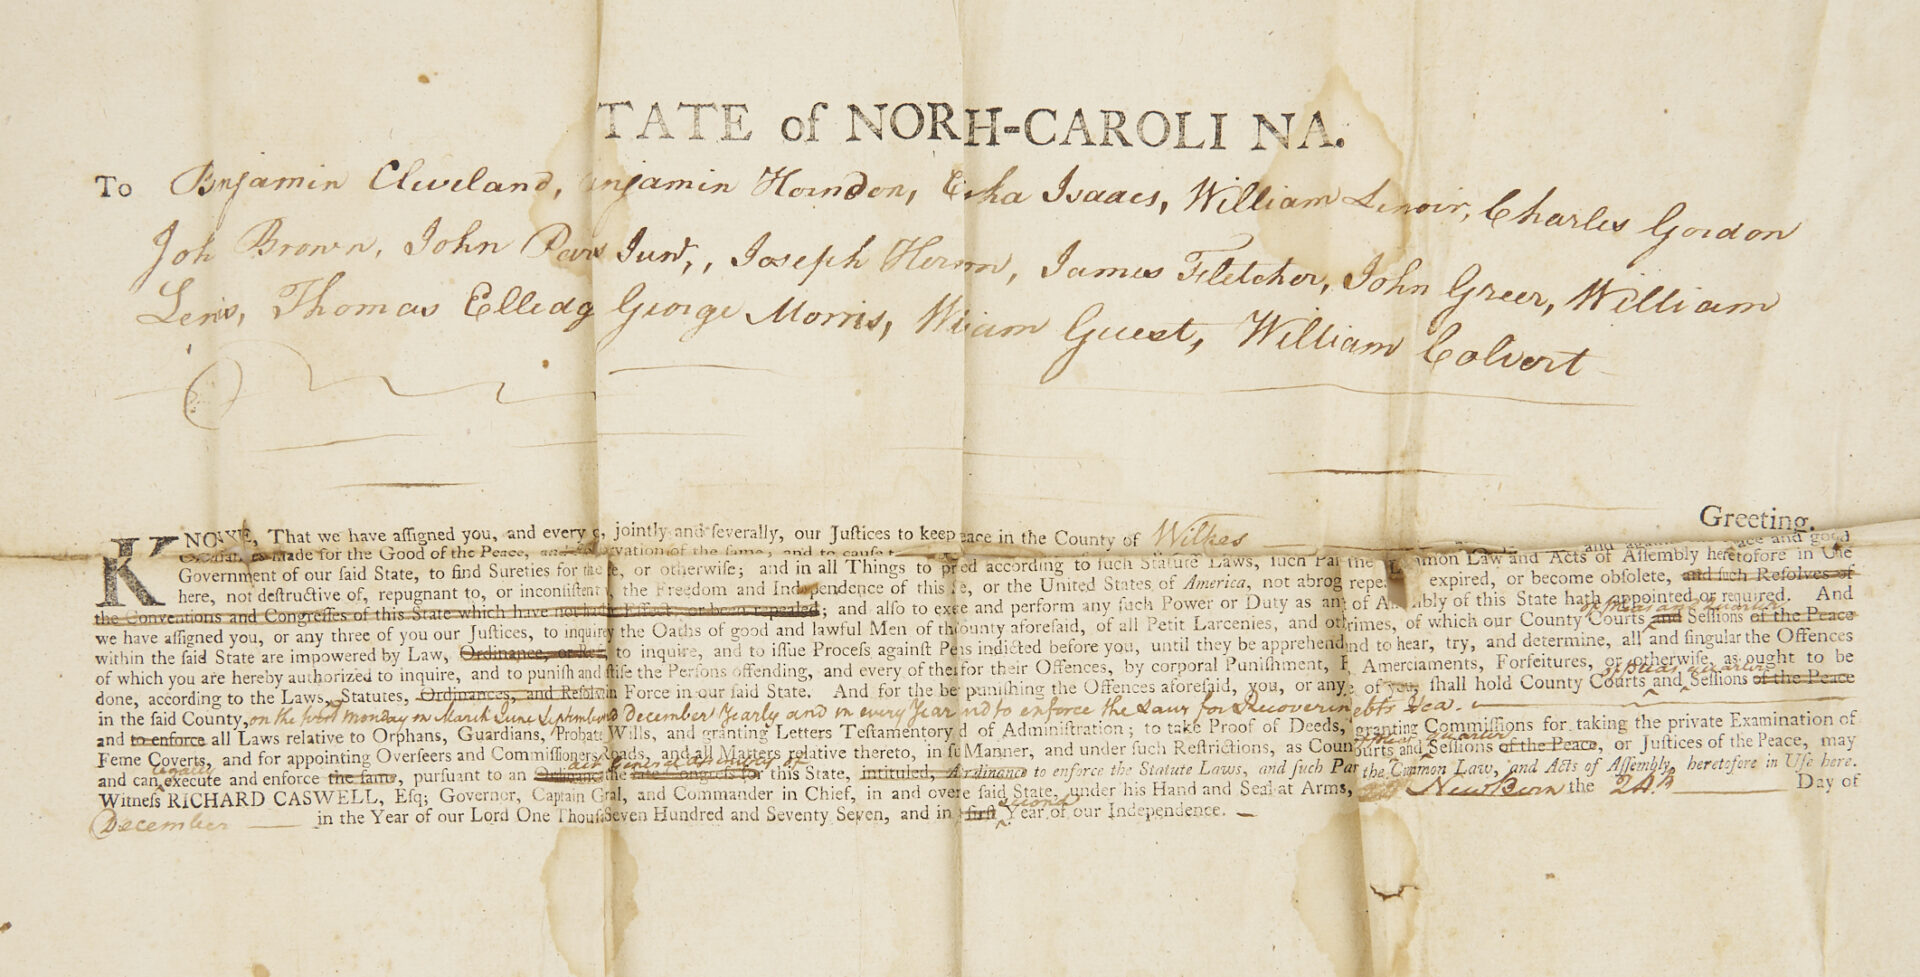 TATE of NORH-CAROLI NA.
To Bnjamin Cleveland, njamin Herndon, Isaacs, William Lenoir, Charles Gordon
Joh Brown, John Par Junr,, Joseph Hern, James Fletcher, John Greer, William
Lewis, Thomas Elledg George Morris, Wiiam Guest, William Colvert
Greeting.
KNOWYE, That we have assigned you, and every o, jointly and severally, our Justices to keep eace in the County of Wilkes
made for the Good of the Peace, and vation of the same; and to cause t and ace and good
Government of our said State, to find Sureties for the e, or otherwise; and in all Things to p ed according to such Statute Laws, such Par the mon Law and Acts of Assembly heretofore in Use
here, not destructive of, repugnant to, or inconsistent the Freedom and Independence of this e, or the United States of America, not abrog repea expired, or become obsolete, and such Resolves of
the Conventions and Congresses of this State which have not Effect, or been repealed; and also to exe e and perform any such Power or Duty as an of A bly of this State hath appointed or required. And
we have assigned you, or any three of you our Justices, to inquire y the Oaths of good and lawful Men of th ounty aforesaid, of all Petit Larcenies, and ot rimes, of which our County Courts and of Pleas and Quarter Sessions of the Peace
within the said State are impowered by Law, Ordinance, or Res to inquire, and to issue Process against Pe ns indicted before you, until they be apprehend nd to hear, try, and determine, all and singular the Offences
of which you are hereby authorized to inquire, and to punish and tise the Persons offending, and every of the for their Offences, by corporal Punishment, F Amerciaments, Forfeitures, or otherwise, as ought to be
done, according to the Laws, Statutes, Ordinances, and Resolv in Force in our said State. And for the be punishing the Offences aforesaid, you, or any e of you, shall hold County Courts of Pleas and Quarter Sessions of the Peace
in the said County, on the first Monday in March June September d December Yearly and in every Year nd to enforce the Laws for Recoverin ebts &ca.
and to enforce all Laws relative to Orphans, Guardians, Probate Wills, and granting Letters Testamentory d of Administration; to take Proof of Deeds, granting Commissions for taking the private Examination of
Feme Coverts, and for appointing Overseers and Commissioners Roads, and all Matters relative thereto, in su Manner, and under such Restrictions, as Coun ourts and Quarter Sessions of the Peace, or Justices of the Peace, may
and can legally execute and enforce the same, pursuant to an Ordinance act General Assembly of the late Congress for this State, intituled, A rdinance to enforce the Statute Laws, and such Par the Cmmon Law, and Acts of Assembly, heretofore in Use here.
Witness RICHARD CASWELL, Esq; Governor, Captain G ral, and Commander in Chief, in and over e said State, under his Hand and Seal at Arms, New Bern the 24th Day of
December in the Year of our Lord One Thous Seven Hundred and Seventy Seven, and in first second Year of our Independence.